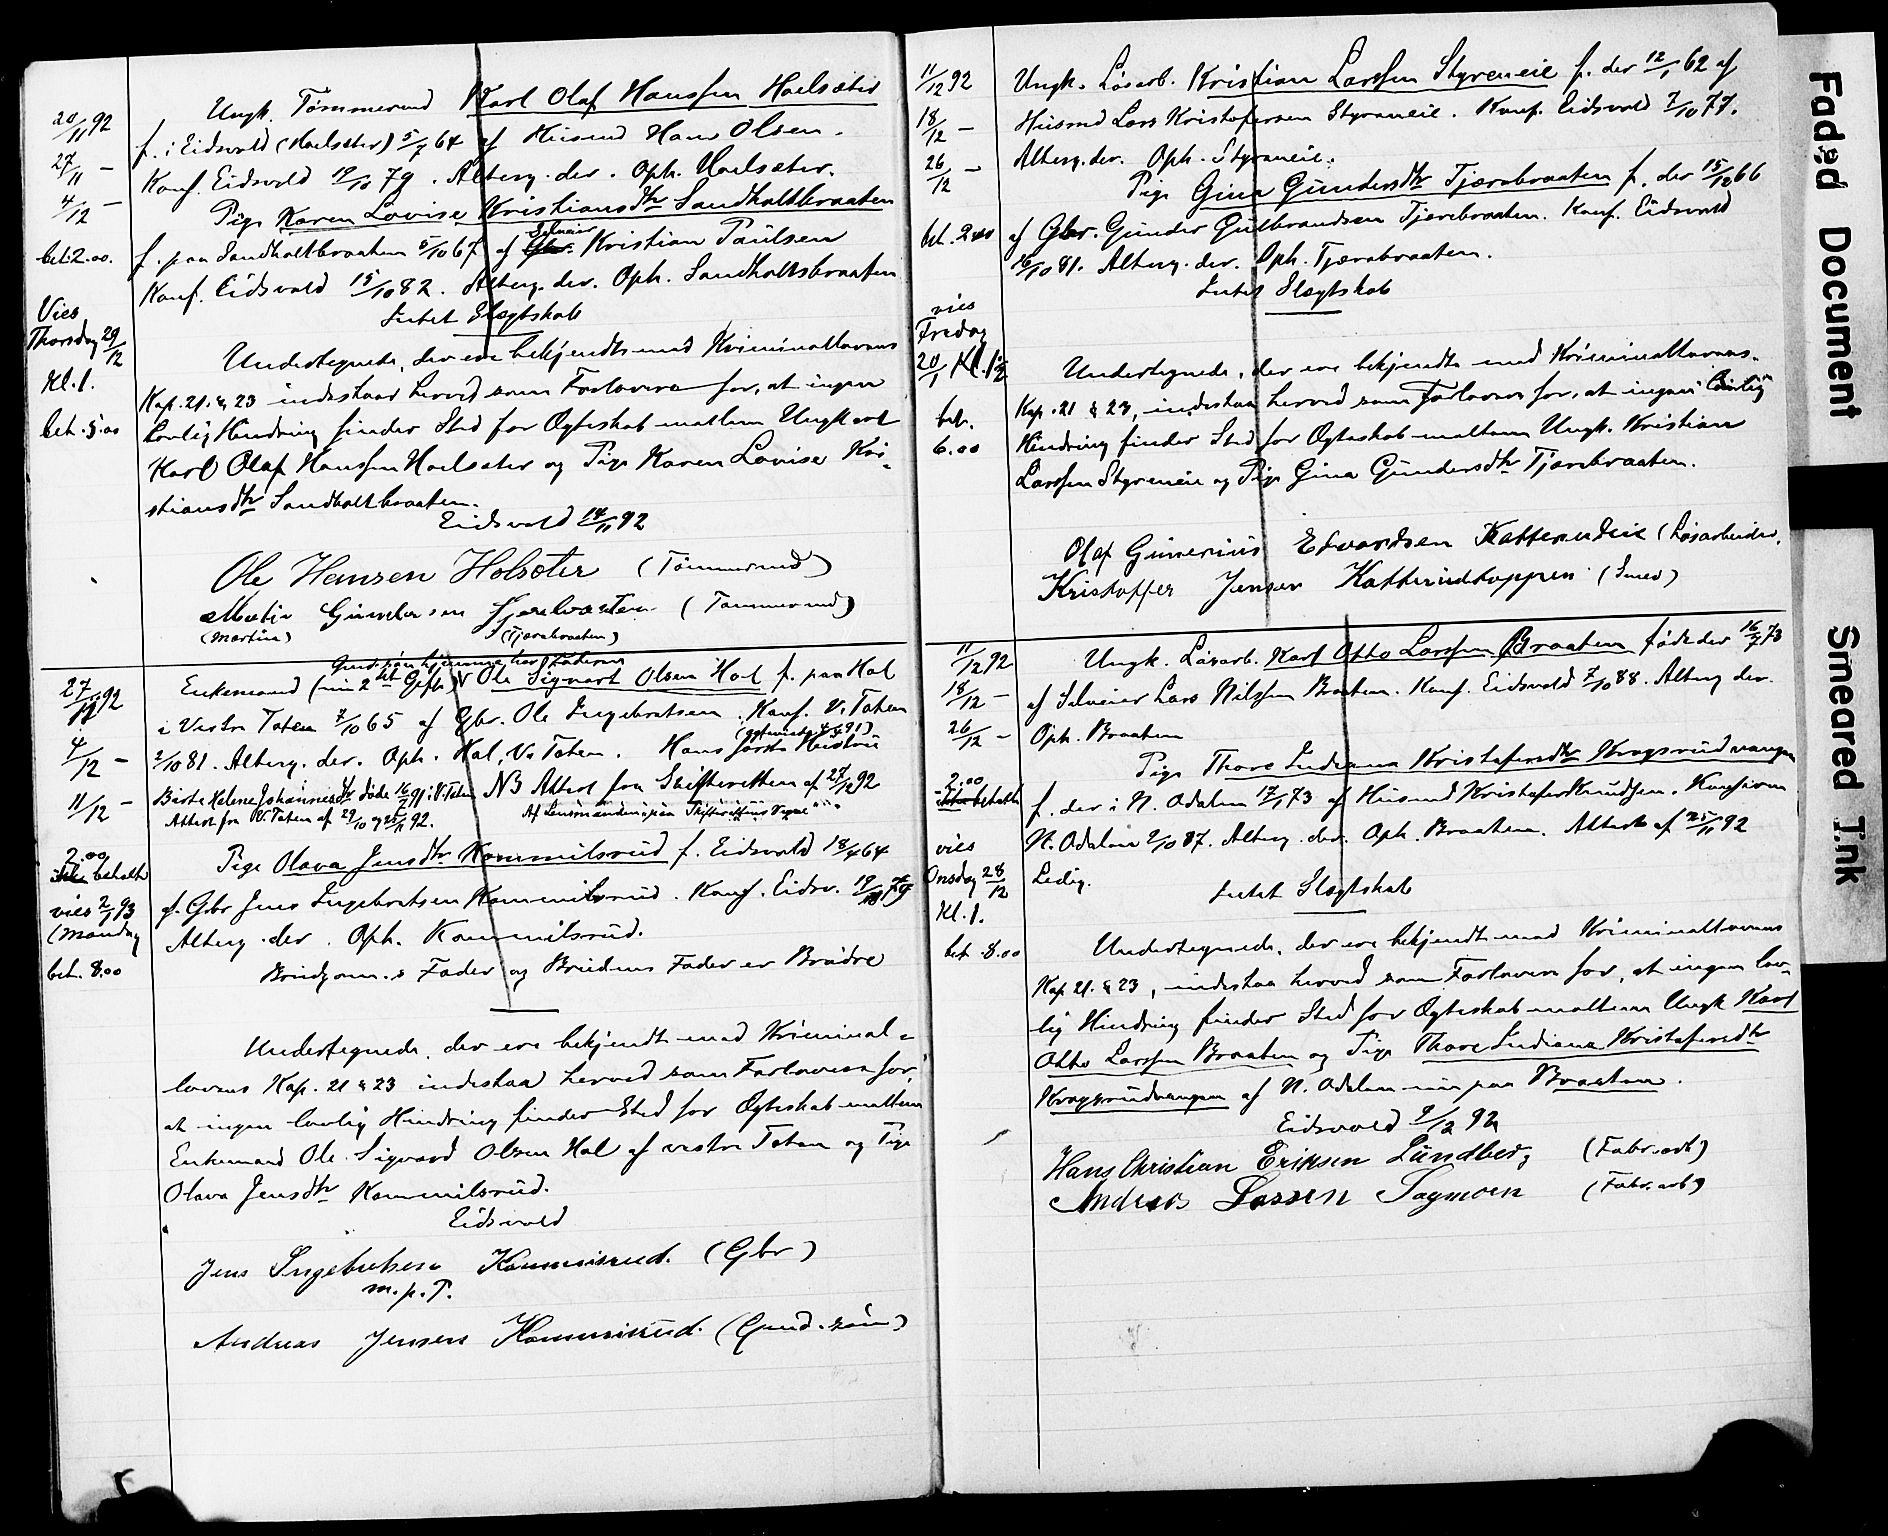 20/11 92
27/11 –
4/12 –
bet. 2.00.
Vies
Thorsdag 29/12
Kl. 1.
bet. 5.00
Ungk. Tømmermd Karl Olaf Hanssen Hoelsæter
f. i Eidsvold (Hoelsæter) 5/7 64 af Husmd Hans Olsen.
Konf. Eidsvold 12/10 79. Alterg. der. Oph. Hoelsæter.
Pige Karen Lovise Kristiansdtr Sandholtbraaten
Selveier
f. paa Sandholtbraaten 5/10 67 af Gbr. Kristian Paulsen
Konf. Eidsvold 15/10 82. Alterg. der. Oph. Sandholtbraaten
Intet Slægtskab
Undertegnede, der ere bekjendte med Kriminallovens
Kap. 21. § 23 indestaar herved som Forlovere for, at ingen
lovlig Hindring finder Sted for Ægteskab mellem Ungkarl
Karl Olaf Hanssen Hoelsæter og Pige Karen Lovise Kri-
stiansdtr Sandholtbraaten.
Eidsvold 14/11 92
Ole Hansen Holseter (Tømmermd)
Martin Gundersen Tjærebraaten (Tømmermd)
(Martin) (Tjærebraaten)
27/11 92
4/12 –
11/12 –
2.00
ikke betalt
vies 2/1 93
(Mandag
bet. 8.00
Gmdsøn hjemme hos Faderen
Enkemand (nu 2det Gift) Ole Sigvart Olsen Hol f. paa Hol
i Vestre Toten 7/10 65 af Gbr. Ole Ingebretsen. Konf. V. Toten
2/10 81. Alterg. der. Oph. Hol, V. Toten. Hans første Hustru
Birte Helene Johannesdtr døde 16/7 91 i V. Toten NB Attest fra Skifteretten af 27/12 92
Attest fra V. Toten af 29/10 og 25/11 92. Af Lensmanden paa Skifterettens Vegne
Pige Olava Jensdtr Kommilsrud f. Eidsvold 18/4 64
af Gbr Jens Ingebretsen Kommilsrud. Konf. Eidsv. 19/10 79
Alterg. der. Oph. Kommilsrud.
Brudgom.s Fader og Brudens Fader er Brødre
Undertegnede, der ere bekjendt med Kriminal-
lovens Kap. 21 § 23 indestaa herved som Forlovere for,
at ingen lovlig Hindring finder Sted for Ægteskab mellem
Enkemand Ole Sigvard Olsen Hol af vestre Toten og Pige
Olava Jensdtr Kommilsrud.
Eidsvold
Jens Ingebretsen Kommisrud. (Gbr)
m. p. P.
Andreas Jensen Kommisrud. (Gmd.søn)
11/12 92
18/12 –
26/12 –
bet. 2.00
vies
Fredag
20/1 Kl. 1 1/2
bet.
6.00
Ungk. Løsarb. Kristian Larssen Styreneie f. der 12/1 62 af
Husmd Lars Kristofersen Styreneie. Konf. Eidsvold 7/10 77.
Alterg. der. Oph. Styreneie.
Pige Gina Gundersdtr Tjærebraaten f. der 15/12 66
af Gbr. Gunder Gulbrandsen Tjærebraaten. Konf. Eidsvold
16/10 81. Alterg. der. Oph. Tjærebraaten.
Intet Slægtskab
Undertegnede, der ere bekjendte med Kriminallovens
Kap. 21 § 23, indestaa herved som Forlovere for, at ingen lovlig
Hindring finder Sted for Ægteskab mellem Ungk. Kristian
Larssen Styreneie og Pige Gina Gundersdtr Tjærebraaten.
Olaf Gunerius Edvardsen Katterudeie (Løsarbeider.
Kristoffer Jensen Katterudtoppen (Smed)
11/12 92
18/12 –
26/12 –
2.00
ikke betalt
vies
Onsdag 28/12
Kl. 1.
bet. 8.00
Ungk. Løsarb. Karl Otto Larssen Braaten født der 16/7 73
af Selveier Lars Nilssen Braaten. Konf. Eidsvold 7/10 88. Alterg der.
Oph. Braaten
Pige Thore Indiana Kristofersdtr Kragsrudvangen
f. der i N. Odalen 17/1 73 af Husmd Kristofer Knudsen. Konfirm
N. Odalen 2/10 87. Alterg. der. Oph. Braaten. Attest af 25/11 92
Ledig.
Intet Slægtskab
Undertegnede, der ere bekjendt med Kriminallovens
Kap. 21. § 23, indestaa herved som Forlovere for, at ingen lov-
lig Hindring finder Sted for Ægteskab mellem Ungk Karl
Otto Larssen Braaten og Pige Thore Indiana Kristofersdtr
Kragsrudvangen af N. Odalen nu paa Braaten.
Eidsvold 9/12 92
Hans Christian Eriksen Lundberg (Fabr.arb)
Andreas Larsen Sagmoen (Fabr.arb)
Faded Document
Smeared Ink